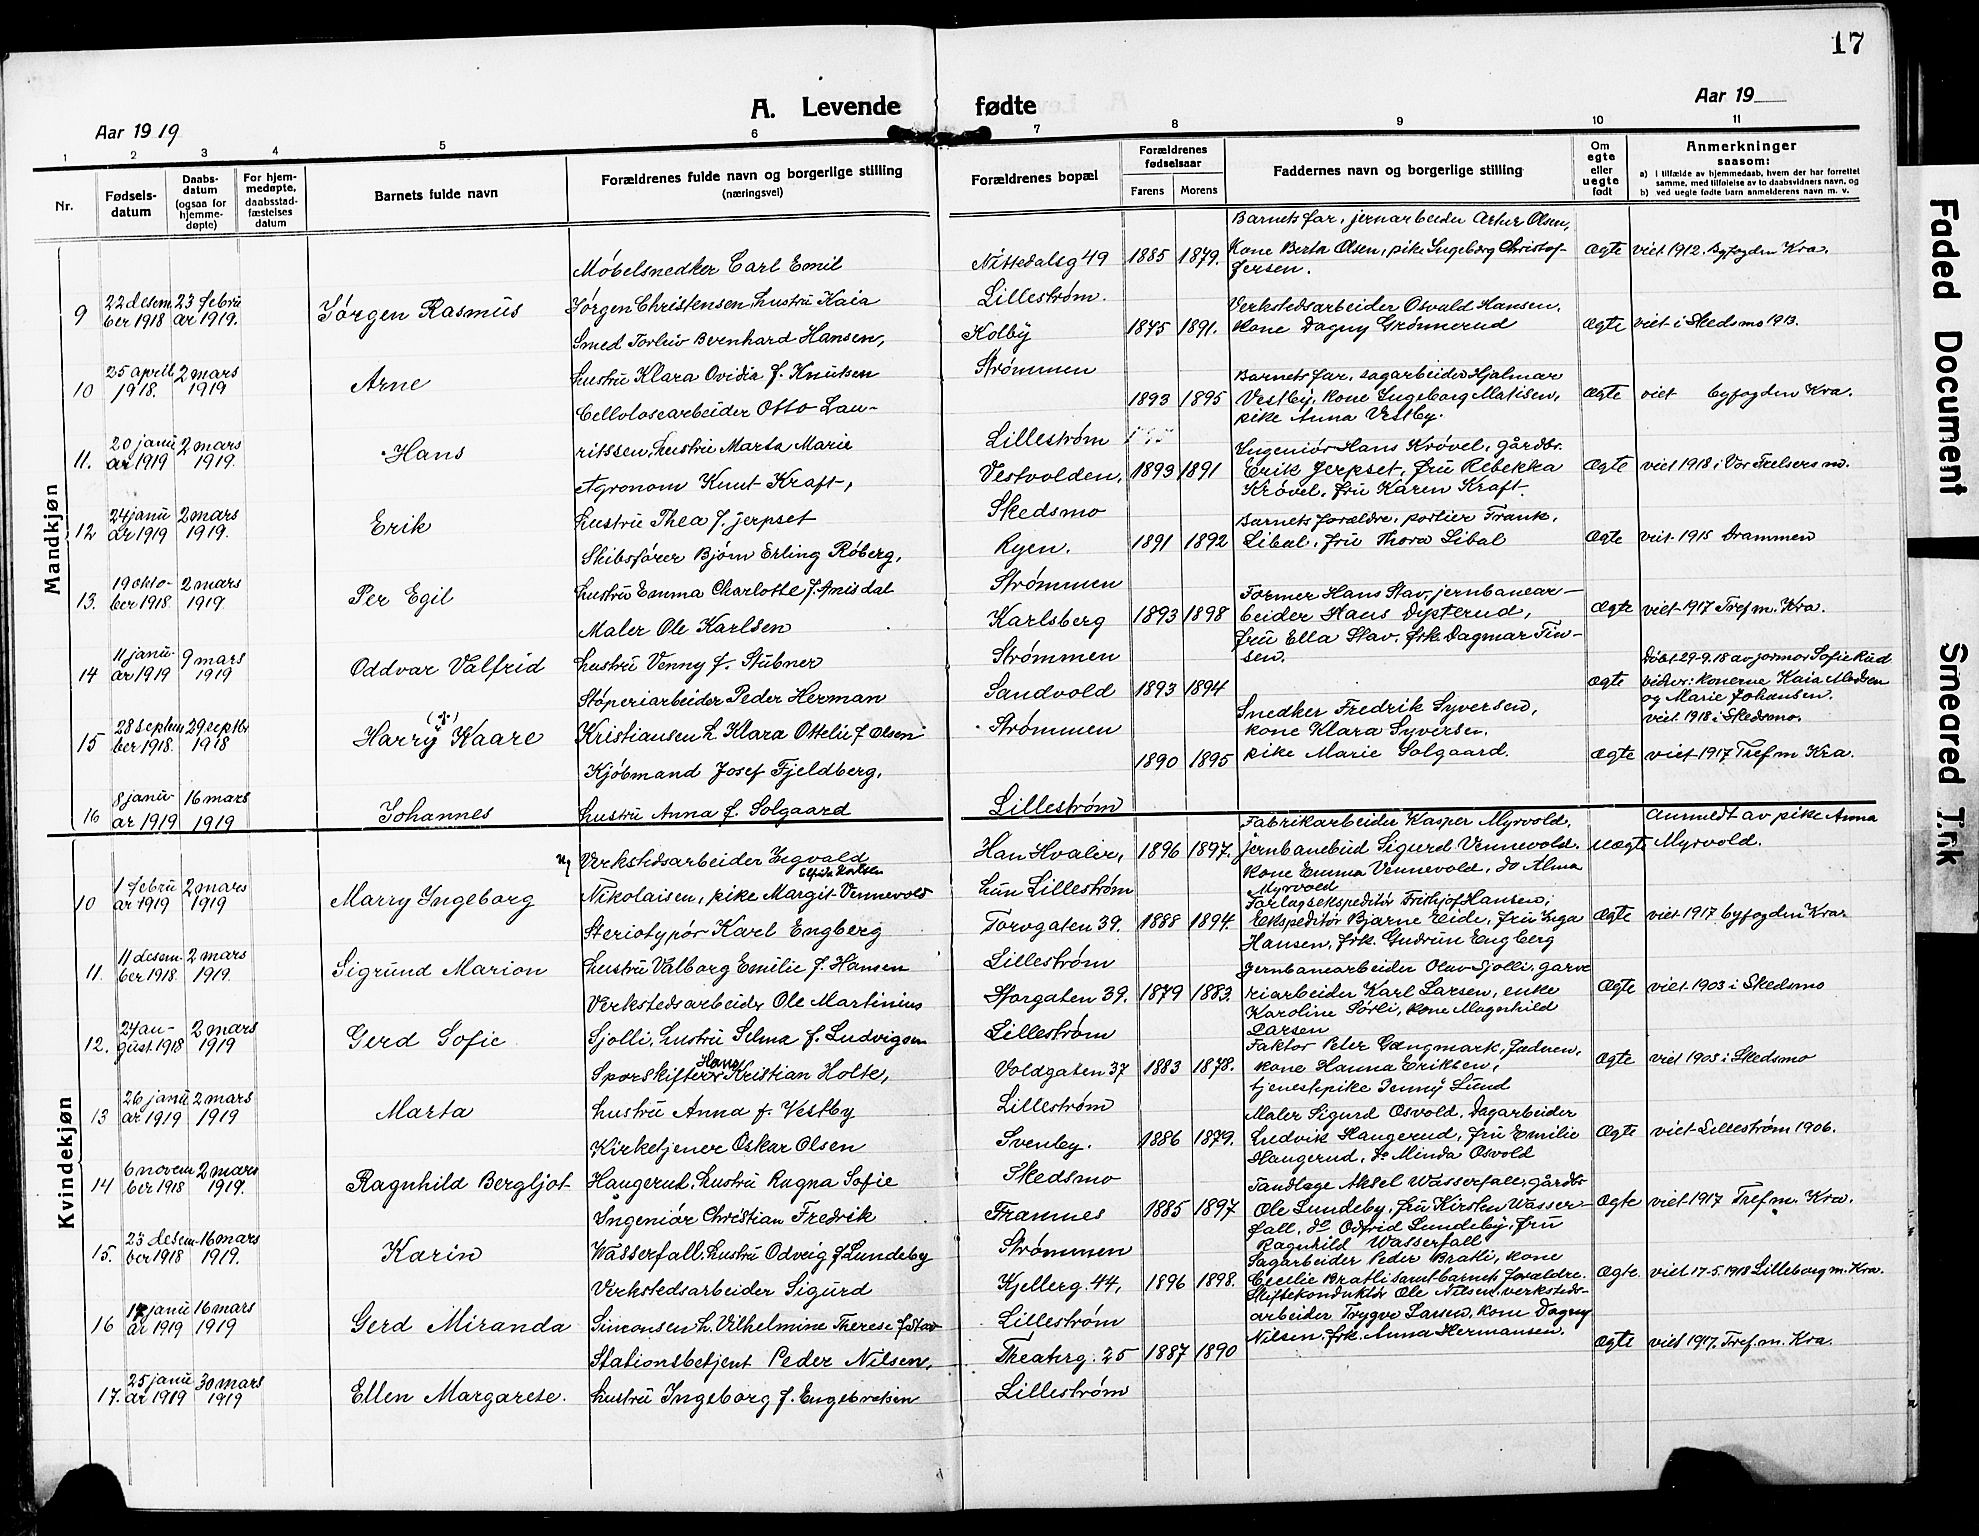 17
A. Levende fødte
Aar 1919
Aar 19
1 2 3 4 5 6 7 8 9 10 11
Nr.
Fødsels-
datum
Daabs-
datum
(ogsaa for
hjemme-
døpte)
For hjem-
medøpte,
daabsstad-
fæstelses
datum
Barnets fulde navn
Forældrenes fulde navn og borgerlige stilling
(næringsvei)
Forældrenes bopæl
Forældrenes
fødselsaar
Farens
Morens
Faddernes navn og borgerlige stilling
Om
egte
eller
uegte
født
Anmerkninger
saasom:
a) I tilfælde av hjemmedaab, hvem der har forrettet
samme, med tilføielse av to daabsvidners navn, og
b) ved uegte fødte barn anmelderens navn m. v.
Mandkjøn
9
22 desem
ber 1918
23 febru
ar 1919.
Jørgen Rasmus
Møbelsnedker Carl Emil
Jørgen Christensen, hustru Kaia
Nittedalsg 49
Lillestrøm.
1885 1879.
Barnets far, jernarbeider Artur Olsen,
Kone Berta Olsen, pike Ingeborg Christof-
fersen.
Ægte
viet 1912. Byfogden Kra.
10
25 april
1918.
2 mars
1919
Arne
Smed Torleiv Bernhard Hansen,
hustru Klara Ovidia f. Knutsen
Kolby
Strømmen
1875 1891.
Verkstedsarbeider Osvald Hansen.
kone Dagny Grønnerud
Ægte
viet i Skedsmo 1913.
11.
20 janu
ar 1919
2 mars
1919.
Hans
Cellulosearbeider Otto Lau-
ritssen, hustru Marta Marie
Lillestrøm
1893 1895
Barnets far, sagarbeider Hjalmar
Vestby, kone Ingeborg Matisen,
pike Anna Vestby.
Ægte
viet byfogden Kra.
12
24 janu
ar 1919
2 mars
1919.
Erik
Agronom Knut Kraft,
hustru Thea f. Jerpset
Vestvolden,
Skedsmo
1893 1891
Ingeniør Hans Krøvel, gårdbr.
Erik Jerpset, fru Rebekka
Krøvel, fru Karen Kraft.
Ægte
viet 1918 i Vor Frelsers m.
13.
19 okto-
ber 1918
2 mars
1919.
Per Egil
Skibsfører Bjørn Erling Røberg,
hustru Emma Charlotte f. Amisdal
Ryen.
Strømmen
1891 1892
Barnets forældre, portier Frank,
Libal, fru Thora Libal
Ægte
viet 1915 Drammen
14
11 janu-
ar 1919
9 mars
1919
Oddvar Valfrid
Maler Ole Karlsen
hustru Venny f. Stubner
Karlsberg
Strømmen
1893 1898
Former Hans Stav, jernbanear-
beider Hans Dypterud,
fru Ella Stav, frk. Dagmar Tin-
sen.
Ægte
viet 1917 Tref m. Kra.
15
28 septem
ber 1918.
29 septbr
1918
Harry (+) Kaare
Støperiarbeider Peder Herman
Kristiansen h. Klara Ottelie f Olsen
Sandvold
Strømmen
1893 1894
Ægte
Døbt 29-9.18 av jormor Sofie Rud
vidner: konerne Kaia Madsen
og Marie Johansen.
viet 1918 i Skedsmo.
16
8 janu-
ar 1919
16 mars
1919
Johannes
Kjøbmand Josef Fjeldberg,
hustru Anna f. Solgaard
Lillestrøm
1890 1895
Snedker Fredrik Syversen,
kone Klara Syversen.
pike Marie Solgaard.
Ægte
viet 1917 Tref m Kra.
Kvindekjøn
10
1 febru
ar 1919
2 mars
1919
Marry Ingeborg
Verkstedsarbeider Segvald
Nikolaisen, pike Margit Vennevold
Han Hvaler,
hun Lillestrøm
1896 1897.
Fabrikarbeider Kasper Myrvold,
jernbanebud Sigurd Vennevold.
kone Emma Vennevold, do Alma
Myrvold
uægte
Anmeldt av pike Anna
Myrvold.
11.
11 desem
ber 1918.
2 mars
1919.
Sigrund Marion
Steriotypør Karl Engberg
hustru Valborg Emilie f. Hansen
Torvgaten 39.
Lillestrøm
1888 1894.
Forlagsekspeditør Frithjof Hansen,
Ekspeditør Bjarne Eide, fru Inga
Hansen, frk. Gudrun Engberg
Ægte
viet 1917 byfogden Kra
12.
24 au-
gust 1918
2 mars
1919
Gerd Sofie
Verkstedsarbeider Ole Martinius
Sjolli, hustru Selma f. Ludvigsen
Storgaten 39.
Lillestrøm
1879 1883.
Jernbanearbeider Olav Sjolli, garve
riarbeider Karl Larsen, enke
Karoline Sørli, kone Magnhild
Larsen
Ægte
viet 1903 i Skedsmo
13
26 janu
ar 1919
2 mars
1919
Marta
Hans
Sporskifter Kristian Holte,
hustru Anna f. Vestby
Voldgaten 37
Lillestrøm
1883 1878.
Faktor Peter Gangmark,
kone Hanna Eriksen,
tjenestepike Jenny Lund
Ægte
viet 1905 i Skedsmo
14
6 novem
ber 1918
2 mars
1919.
Ragnhild Bergljot
Kirketjener Oskar Olsen
Haugerud, hustru Ragna Sofie
Svenby.
Skedsmo
1886 1879.
Maler Sigurd Osvold, Dagarbeider
Ludvik Haugerud, fru Emilie
Haugerud, do Minda Osvold
Ægte
viet Lillestrøm 1906.
15.
23 desem
ber 1918
16 mars
1919.
Karin
Ingeniør Christian Fredrik
Wasserfall, hustru Odveig f Lundeby
Framnes
Strømmen
1885 1897
Tandlæge Aksel Wasserfall, gårdbr
Ole Lundeby, fru Kirsten Wasser-
fall, do Odfrid Lundeby, fru
Ragnhild Wasserfall
Ægte
viet 1917 Tref m. Kra.
16
janu
ar 1919
16 mars
1919
Gerd Miranda
Verkstedsarbeider Sigurd
Simonsen h. Vilhelmine Therese f Stav
Kjellerg. 44,
Lillestrøm
1896 1898.
Sagarbeider Peder Bratli, kone
Cecilie Bratli samt barnets forældre.
Ægte.
viet 17-5.1918 Lilleborg m. Kra.
17.
25 janu
ar 1919
30 mars
1919
Ellen Margarete.
Stationsbetjent Peder Nilsen,
hustru Ingeborg f. Engebretsen
Theaterg. 25
Lillestrøm
1887 1890
Skiftekonduktør Ole Nilsen, verksteds-
arbeider Trygve Larsen, kone Dagny
Nilsen, frk. Anna Hermansen.
Ægte
viet 1917. Tref. m. Kra.
Faded Document
Smeared Ink